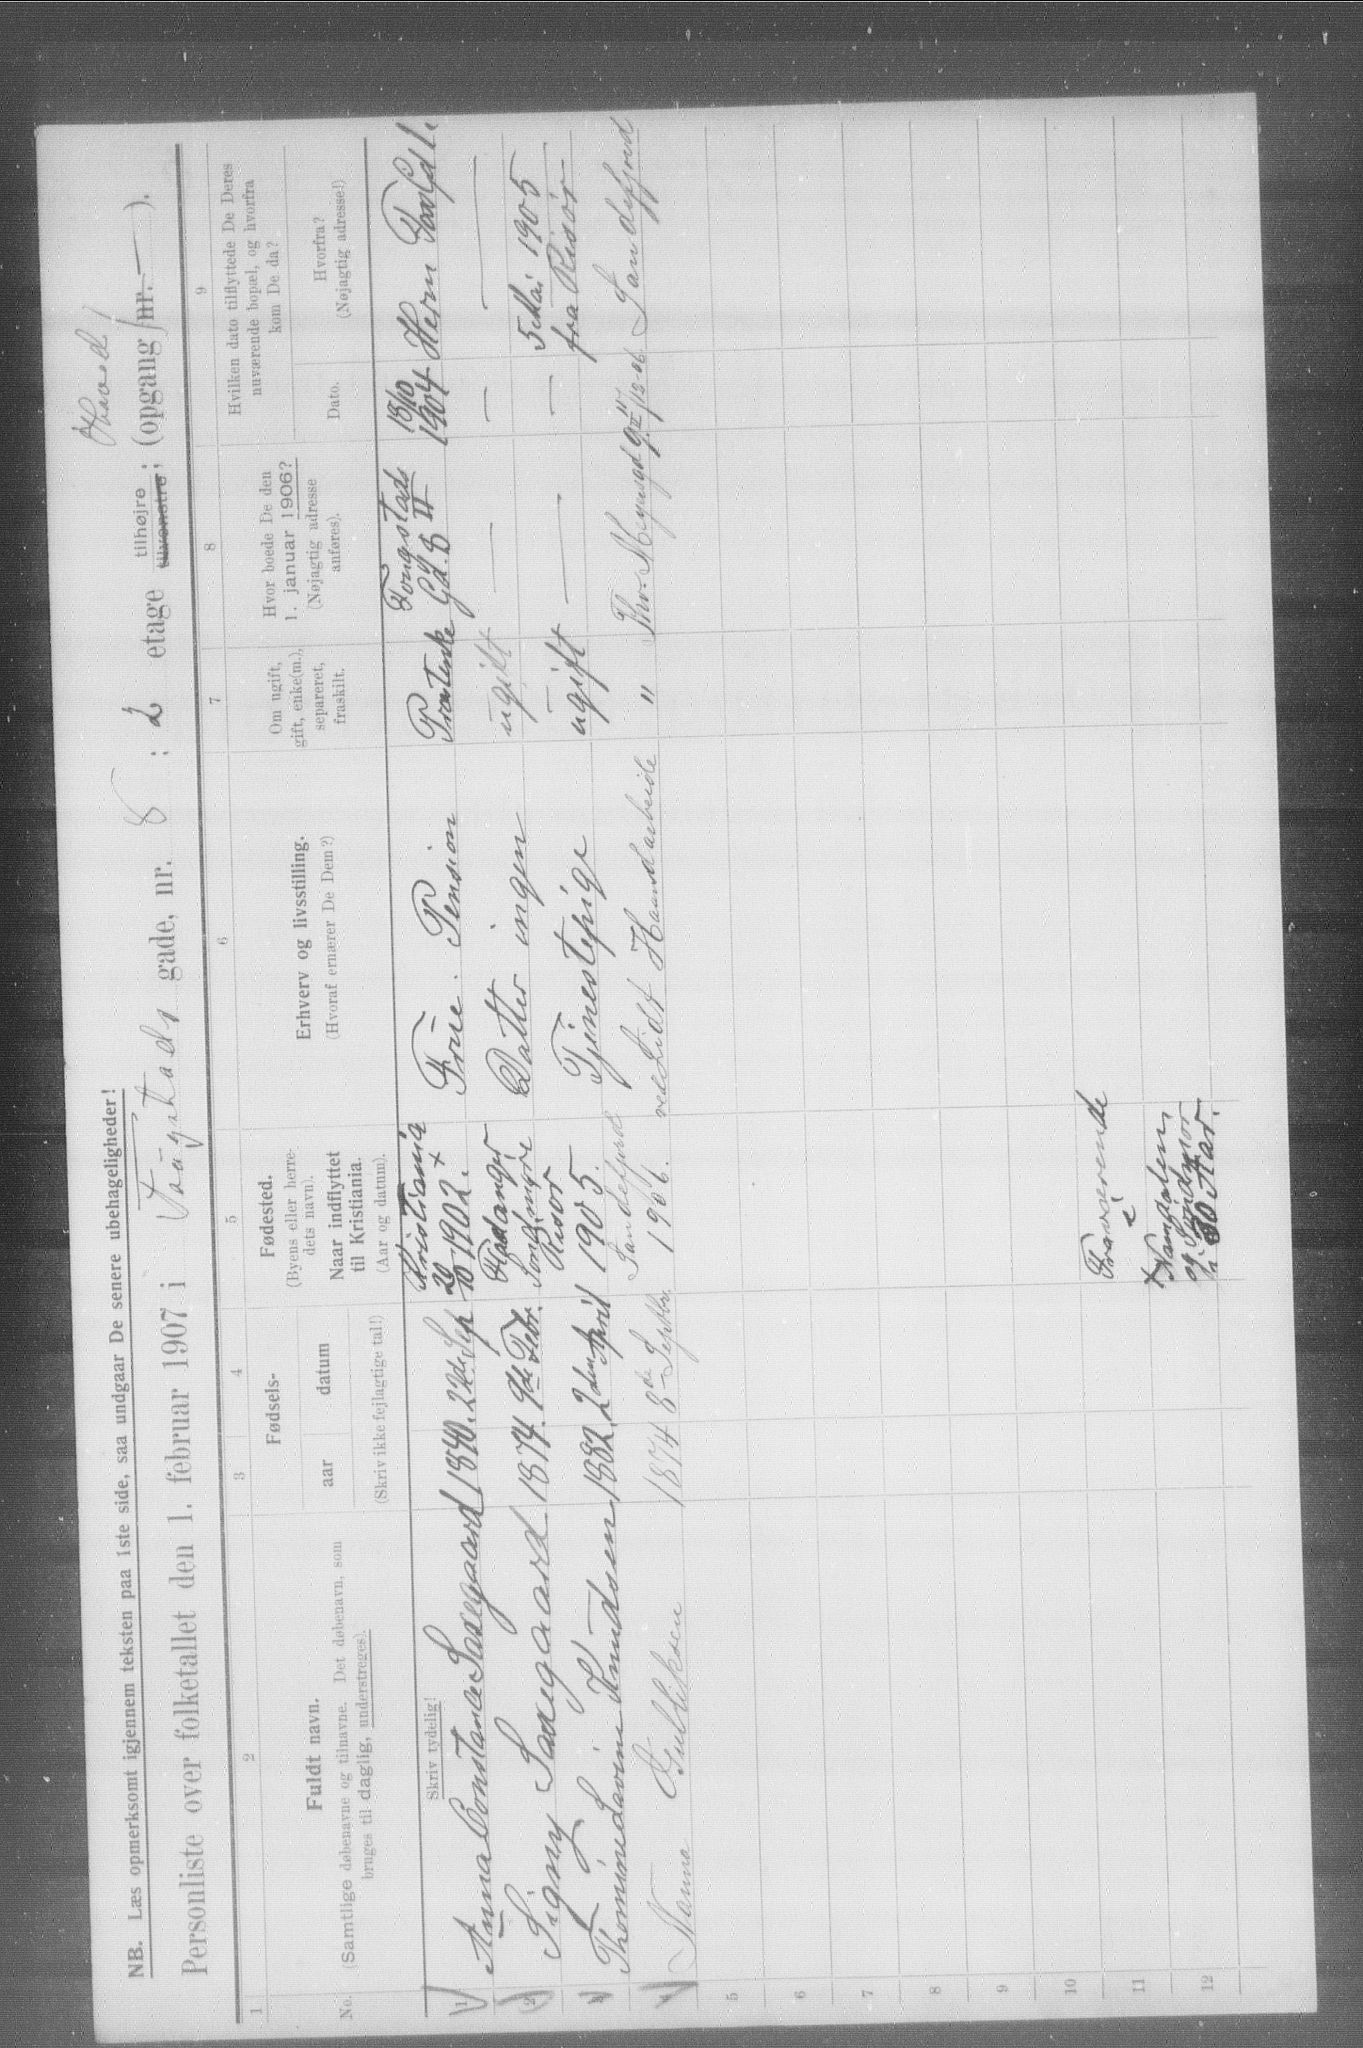 NB. Læs opmerksomt igjennem teksten paa 1ste side, saa undgaar De senere ubehageligheder!
Personliste over folketallet den 1. februar 1907 i Tougstads gade, nr. 8 ; 2 etage tilhøjre ; tilvenstre ; (opgang nr. — ).
1 2 3 4 5 6 7 8 9
No.
Fuldt navn.
(Samtlige døbenavne og tilnavne. Det døbenavn, som
bruges til daglig, understreges).
Fødsels-
aar datum
(Skriv ikke fejlagtige tal!)
Fødested.
(Byens eller herre-
dets navn).
Naar indflyttet
til Kristiania.
(Aar og datum).
Erhverv og livsstilling.
(Hvoraf ernærer De Dem?)
Om ugift,
gift, enke(m.),
separeret,
fraskilt.
Hvor boede De den
1. januar 1906?
(Nøjagtig adresse
anføres).
Hvilken dato tilflyttede De Deres
nuværende bopæl, og hvorfra
kom De da?
Dato.
Hvorfra?
(Nøjagtig adresse!)
Skriv tydelig!
1 Anna Constance Saxegaard 1840. Sep Kristiania 1902. + Frue. Pension Tougstads Gd. 8 II 15/10 1904 Herm
2 Signy Saxegaard 1874. 9de Febr. Datter ingen ugift — — —
3 Thomine Lavine Knudsen 1882. 2den April Risør 1905. Tjenestepige ugift — — 5 Mai 1905
fra Risør
4 Nanna 1874 8de Septbr. Sandefjord 1906. ved Lidt Haandarbeide " Thv. Meyersgd 9 II 11/12 06 Sandefjord
5
6
7
8
9
10 Fraværende
i
11 + Namdalen
12 og
30 Aar.